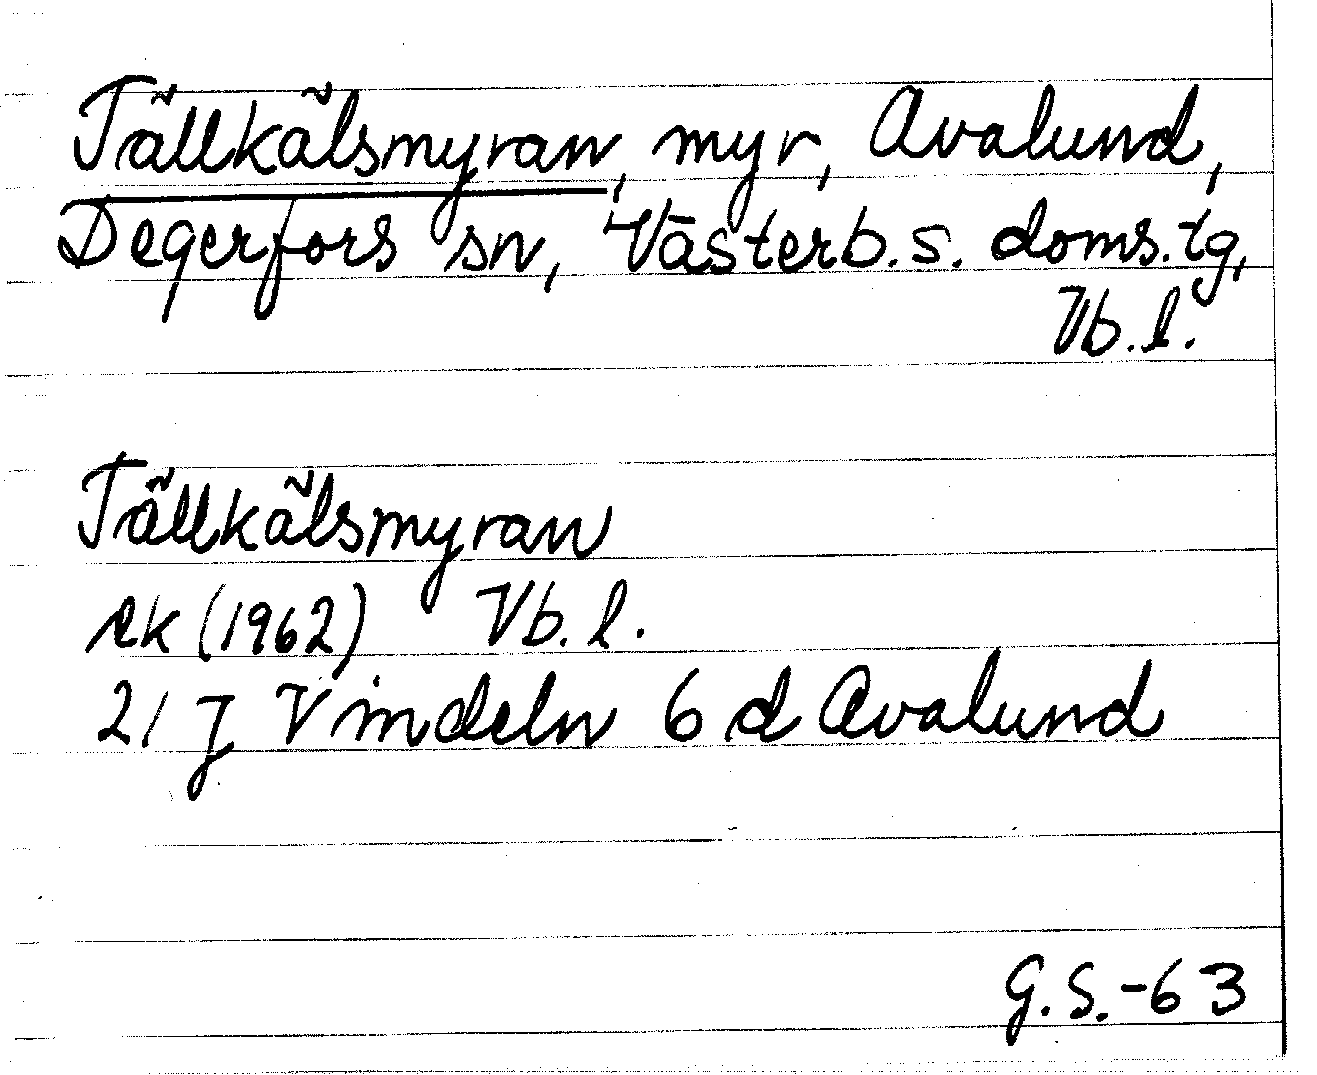 Tällkälsmyran, myr, Avalund,
Degerfors sn, Västerb. s. doms. tg,
Vb. l.
Tällkälsmyran
ek (1962) Vb. l.
21 J Vindeln 6 d Avalund
G. S. -63